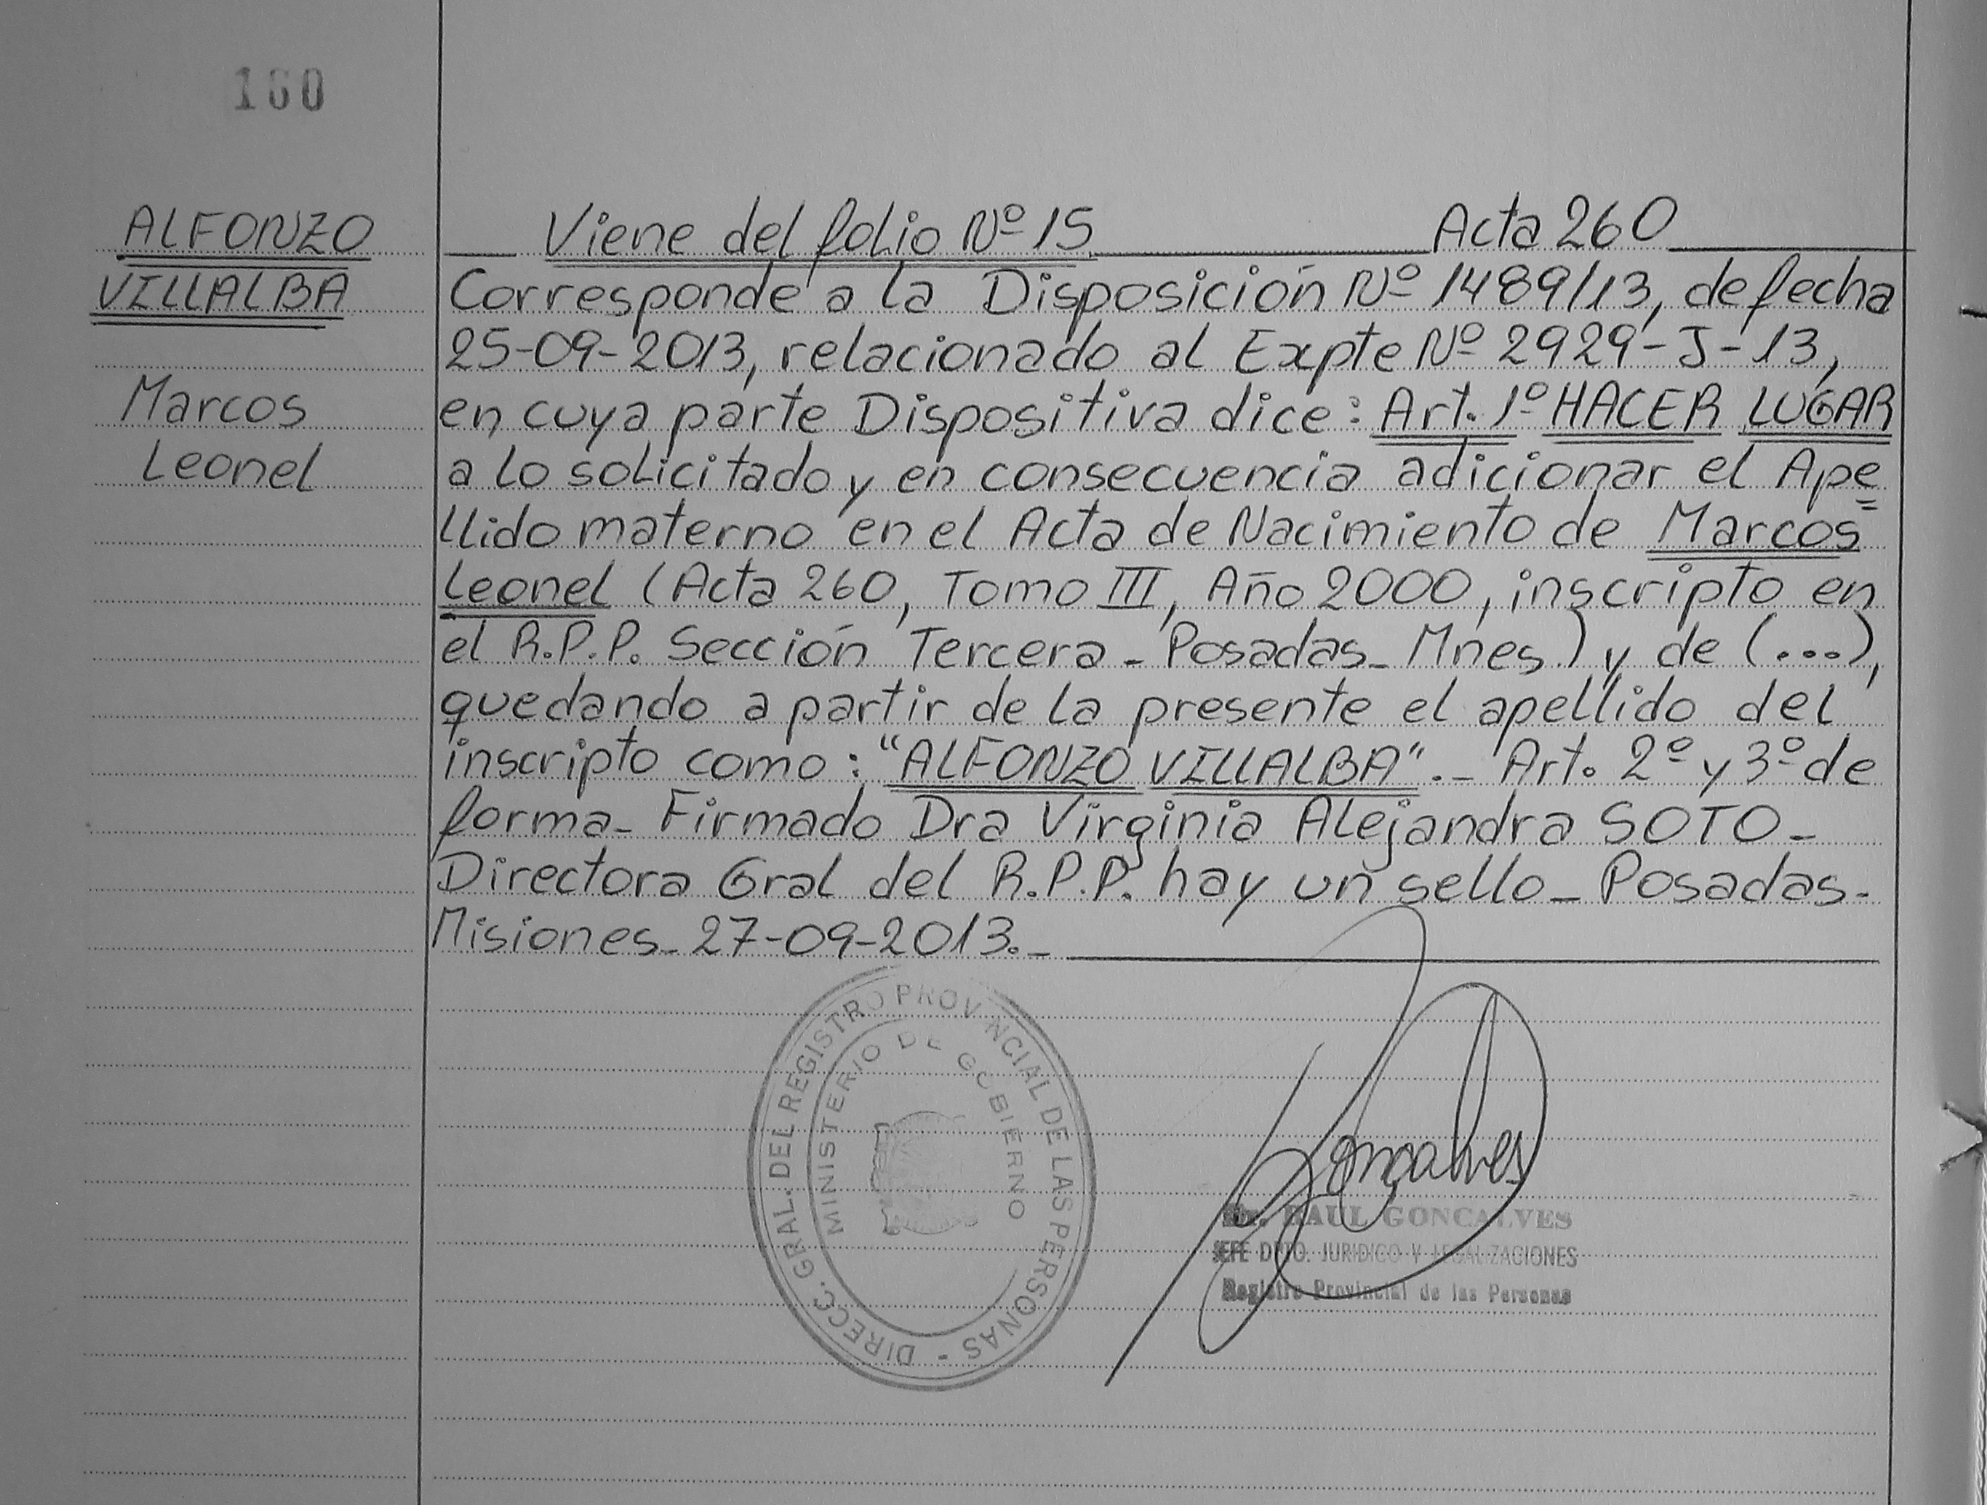 160
ALFONZO
VILLALBA
Marcos
Leonel
Viene del folio Nº 15 Acta 260
Corresponde a la Disposición Nº 1489/13, de fecha
25-09-2013, relacionado al Expte Nº 2929-J-13,
en cuya parte Dispositiva dice: Art. 1º HACER LUGAR
a lo solicitado y en consecuencia adicionar el Ape=
llido materno en el Acta de Nacimiento de Marcos
Leonel (Acta 260, Tomo III, Año 2000, inscripto en
el R.P.P. Sección Tercera - Posadas - Mnes.) y de (...),
quedando a partir de la presente el apellido del
inscripto como: "ALFONZO VILLALBA".- Art. 2º y 3º de
forma- Firmado Dra Virginia Alejandra SOTO-
Directora Gral del R.P.P. hay un sello- Posadas-
Misiones- 27-09-2013.-
DIRECC. GRAL. DEL REGISTRO PROVINCIAL DE LAS PERSONAS -
MINISTERIO DE GOBIERNO
Gonçalves
RAUL GONCALVES
JEFE DPTO. JURIDICO Y LEGALIZACIONES
Registro Provincial de las Personas